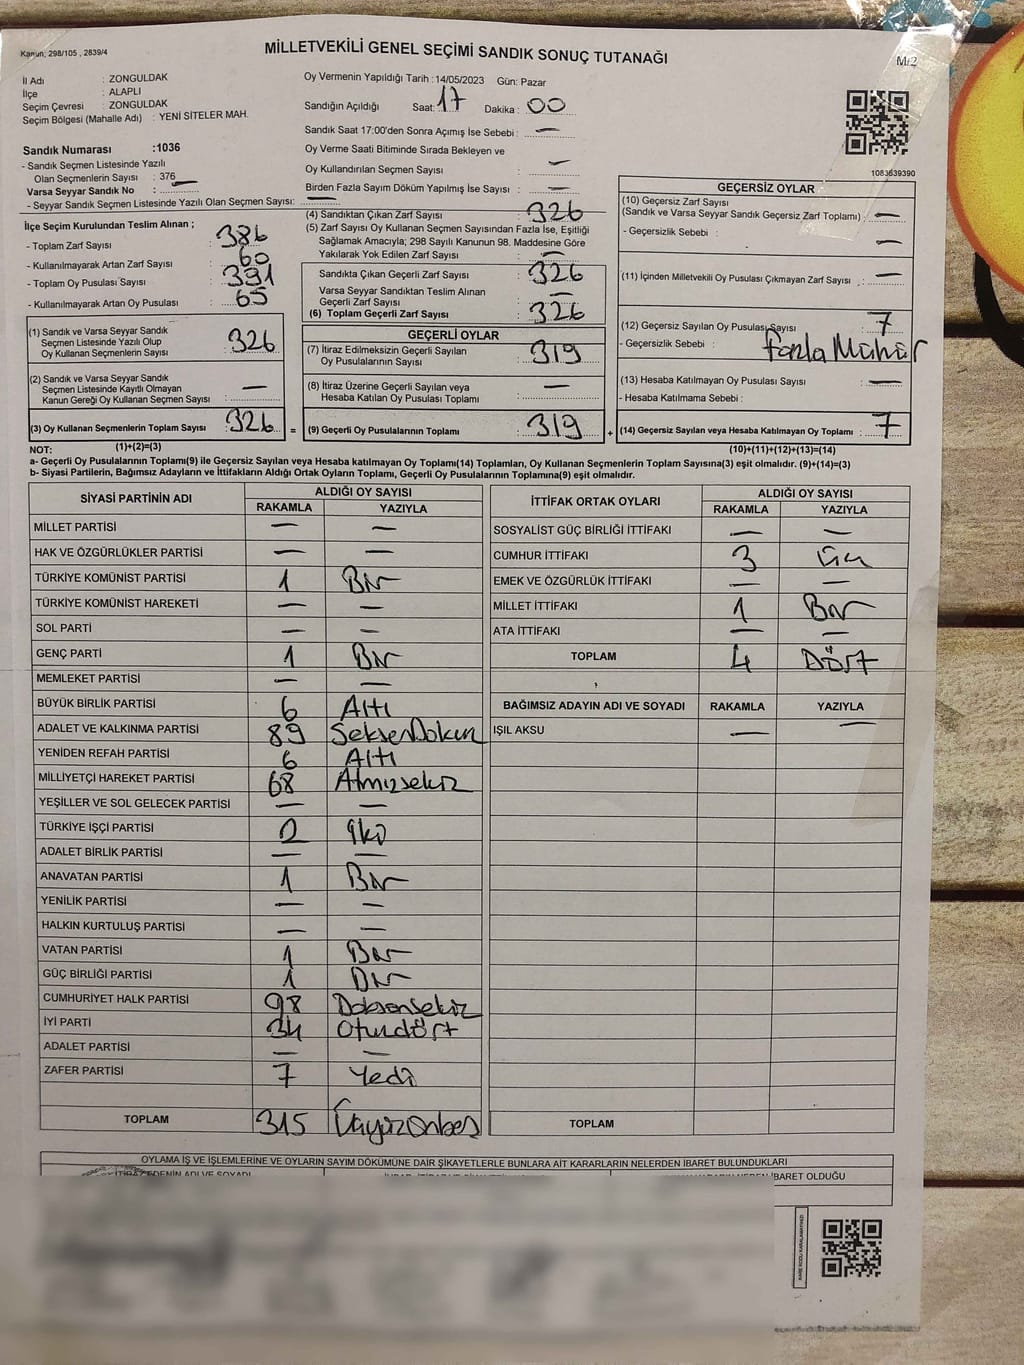 Kanun; 298/105 , 2839/4
MİLLETVEKİLİ GENEL SEÇİMİ SANDIK SONUÇ TUTANAĞI
İl Adı : ZONGULDAK
İlçe : ALAPLI
Seçim Çevresi : ZONGULDAK
Seçim Bölgesi (Mahalle Adı) : YENİ SİTELER MAH.
Oy Vermenin Yapıldığı Tarih : 14/05/2023 Gün: Pazar
Sandığın Açıldığı Saat: 17 Dakika : 00
Sandık Saat 17:00'den Sonra Açımış İse Sebebi : —
Oy Verme Saati Bitiminde Sırada Bekleyen ve
Oy Kullandırılan Seçmen Sayısı : —
Birden Fazla Sayım Döküm Yapılmış İse Sayısı : —
Sandık Numarası :1036
- Sandık Seçmen Listesinde Yazılı
Olan Seçmenlerin Sayısı : 376
Varsa Seyyar Sandık No : —
- Seyyar Sandık Seçmen Listesinde Yazılı Olan Seçmen Sayısı: —
1083639390
İlçe Seçim Kurulundan Teslim Alınan ;
- Toplam Zarf Sayısı : 386
- Kullanılmayarak Artan Zarf Sayısı : 60
- Toplam Oy Pusulası Sayısı : 391
- Kullanılmayarak Artan Oy Pusulası : 65
(1) Sandık ve Varsa Seyyar Sandık
Seçmen Listesinde Yazılı Olup
Oy Kullanan Seçmenlerin Sayısı : 326
(2) Sandık ve Varsa Seyyar Sandık
Seçmen Listesinde Kayıtlı Olmayan
Kanun Gereği Oy Kullanan Seçmen Sayısı : —
(3) Oy Kullanan Seçmenlerin Toplam Sayısı : 326 =
(4) Sandıktan Çıkan Zarf Sayısı : 326
(5) Zarf Sayısı Oy Kullanan Seçmen Sayısından Fazla İse, Eşitliği
Sağlamak Amacıyla; 298 Sayılı Kanunun 98. Maddesine Göre
Yakılarak Yok Edilen Zarf Sayısı : —
Sandıkta Çıkan Geçerli Zarf Sayısı : 326
Varsa Seyyar Sandıktan Teslim Alınan
Geçerli Zarf Sayısı : —
(6) Toplam Geçerli Zarf Sayısı : 326
GEÇERLİ OYLAR
(7) İtiraz Edilmeksizin Geçerli Sayılan
Oy Pusulalarının Sayısı : 319
(8) İtiraz Üzerine Geçerli Sayılan veya
Hesaba Katılan Oy Pusulası Toplamı : —
(9) Geçerli Oy Pusulalarının Toplamı : 319 +
GEÇERSİZ OYLAR
(10) Geçersiz Zarf Sayısı
(Sandık ve Varsa Seyyar Sandık Geçersiz Zarf Toplamı) : —
- Geçersizlik Sebebi : —
(11) İçinden Milletvekili Oy Pusulası Çıkmayan Zarf Sayısı : —
(12) Geçersiz Sayılan Oy Pusulası Sayısı : 7
- Geçersizlik Sebebi : fazla Mühür
(13) Hesaba Katılmayan Oy Pusulası Sayısı : —
- Hesaba Katılmama Sebebi :
(14) Geçersiz Sayılan veya Hesaba Katılmayan Oy Toplamı : 7
NOT: (1)+(2)=(3) (10)+(11)+(12)+(13)=(14)
a- Geçerli Oy Pusulalarının Toplamı(9) ile Geçersiz Sayılan veya Hesaba katılmayan Oy Toplamı(14) Toplamları, Oy Kullanan Seçmenlerin Toplam Sayısına(3) eşit olmalıdır. (9)+(14)=(3)
b- Siyasi Partilerin, Bağımsız Adayların ve İttifakların Aldığı Ortak Oyların Toplamı, Geçerli Oy Pusulalarının Toplamına(9) eşit olmalıdır.
SİYASİ PARTİNİN ADI ALDIĞI OY SAYISI
RAKAMLA YAZIYLA
MİLLET PARTİSİ — —
HAK VE ÖZGÜRLÜKLER PARTİSİ — —
TÜRKİYE KOMÜNİST PARTİSİ 1 Bir
TÜRKİYE KOMÜNİST HAREKETİ — —
SOL PARTİ — —
GENÇ PARTİ 1 Bir
MEMLEKET PARTİSİ — —
BÜYÜK BİRLİK PARTİSİ 6 Altı
ADALET VE KALKINMA PARTİSİ 89 SeksenDokuz
YENİDEN REFAH PARTİSİ 6 Altı
MİLLİYETÇİ HAREKET PARTİSİ 68 Atmışsekiz
YEŞİLLER VE SOL GELECEK PARTİSİ — —
TÜRKİYE İŞÇİ PARTİSİ 2 iki
ADALET BİRLİK PARTİSİ — —
ANAVATAN PARTİSİ 1 Bir
YENİLİK PARTİSİ — —
HALKIN KURTULUŞ PARTİSİ — —
VATAN PARTİSİ 1 Bir
GÜÇ BİRLİĞİ PARTİSİ 1 Bir
CUMHURİYET HALK PARTİSİ 98 Doksansekiz
İYİ PARTİ 34 Otuzdört
ADALET PARTİSİ — —
ZAFER PARTİSİ 7 Yedi
TOPLAM 315 Üçyüzonbeş
İTTİFAK ORTAK OYLARI ALDIĞI OY SAYISI
RAKAMLA YAZIYLA
SOSYALİST GÜÇ BİRLİĞİ İTTİFAKI — —
CUMHUR İTTİFAKI 3 Üç
EMEK VE ÖZGÜRLÜK İTTİFAKI — —
MİLLET İTTİFAKI 1 Bir
ATA İTTİFAKI — —
TOPLAM 4 Dört
BAĞIMSIZ ADAYIN ADI VE SOYADI RAKAMLA YAZIYLA
IŞIL AKSU — —
TOPLAM
OYLAMA İŞ VE İŞLEMLERİNE VE OYLARIN SAYIM DÖKÜMÜNE DAİR ŞİKAYETLERLE BUNLARA AİT KARARLARIN NELERDEN İBARET BULUNDUKLARI
İTİRAZ EDENİN ADI VE SOYADI
İBARET OLDUĞU